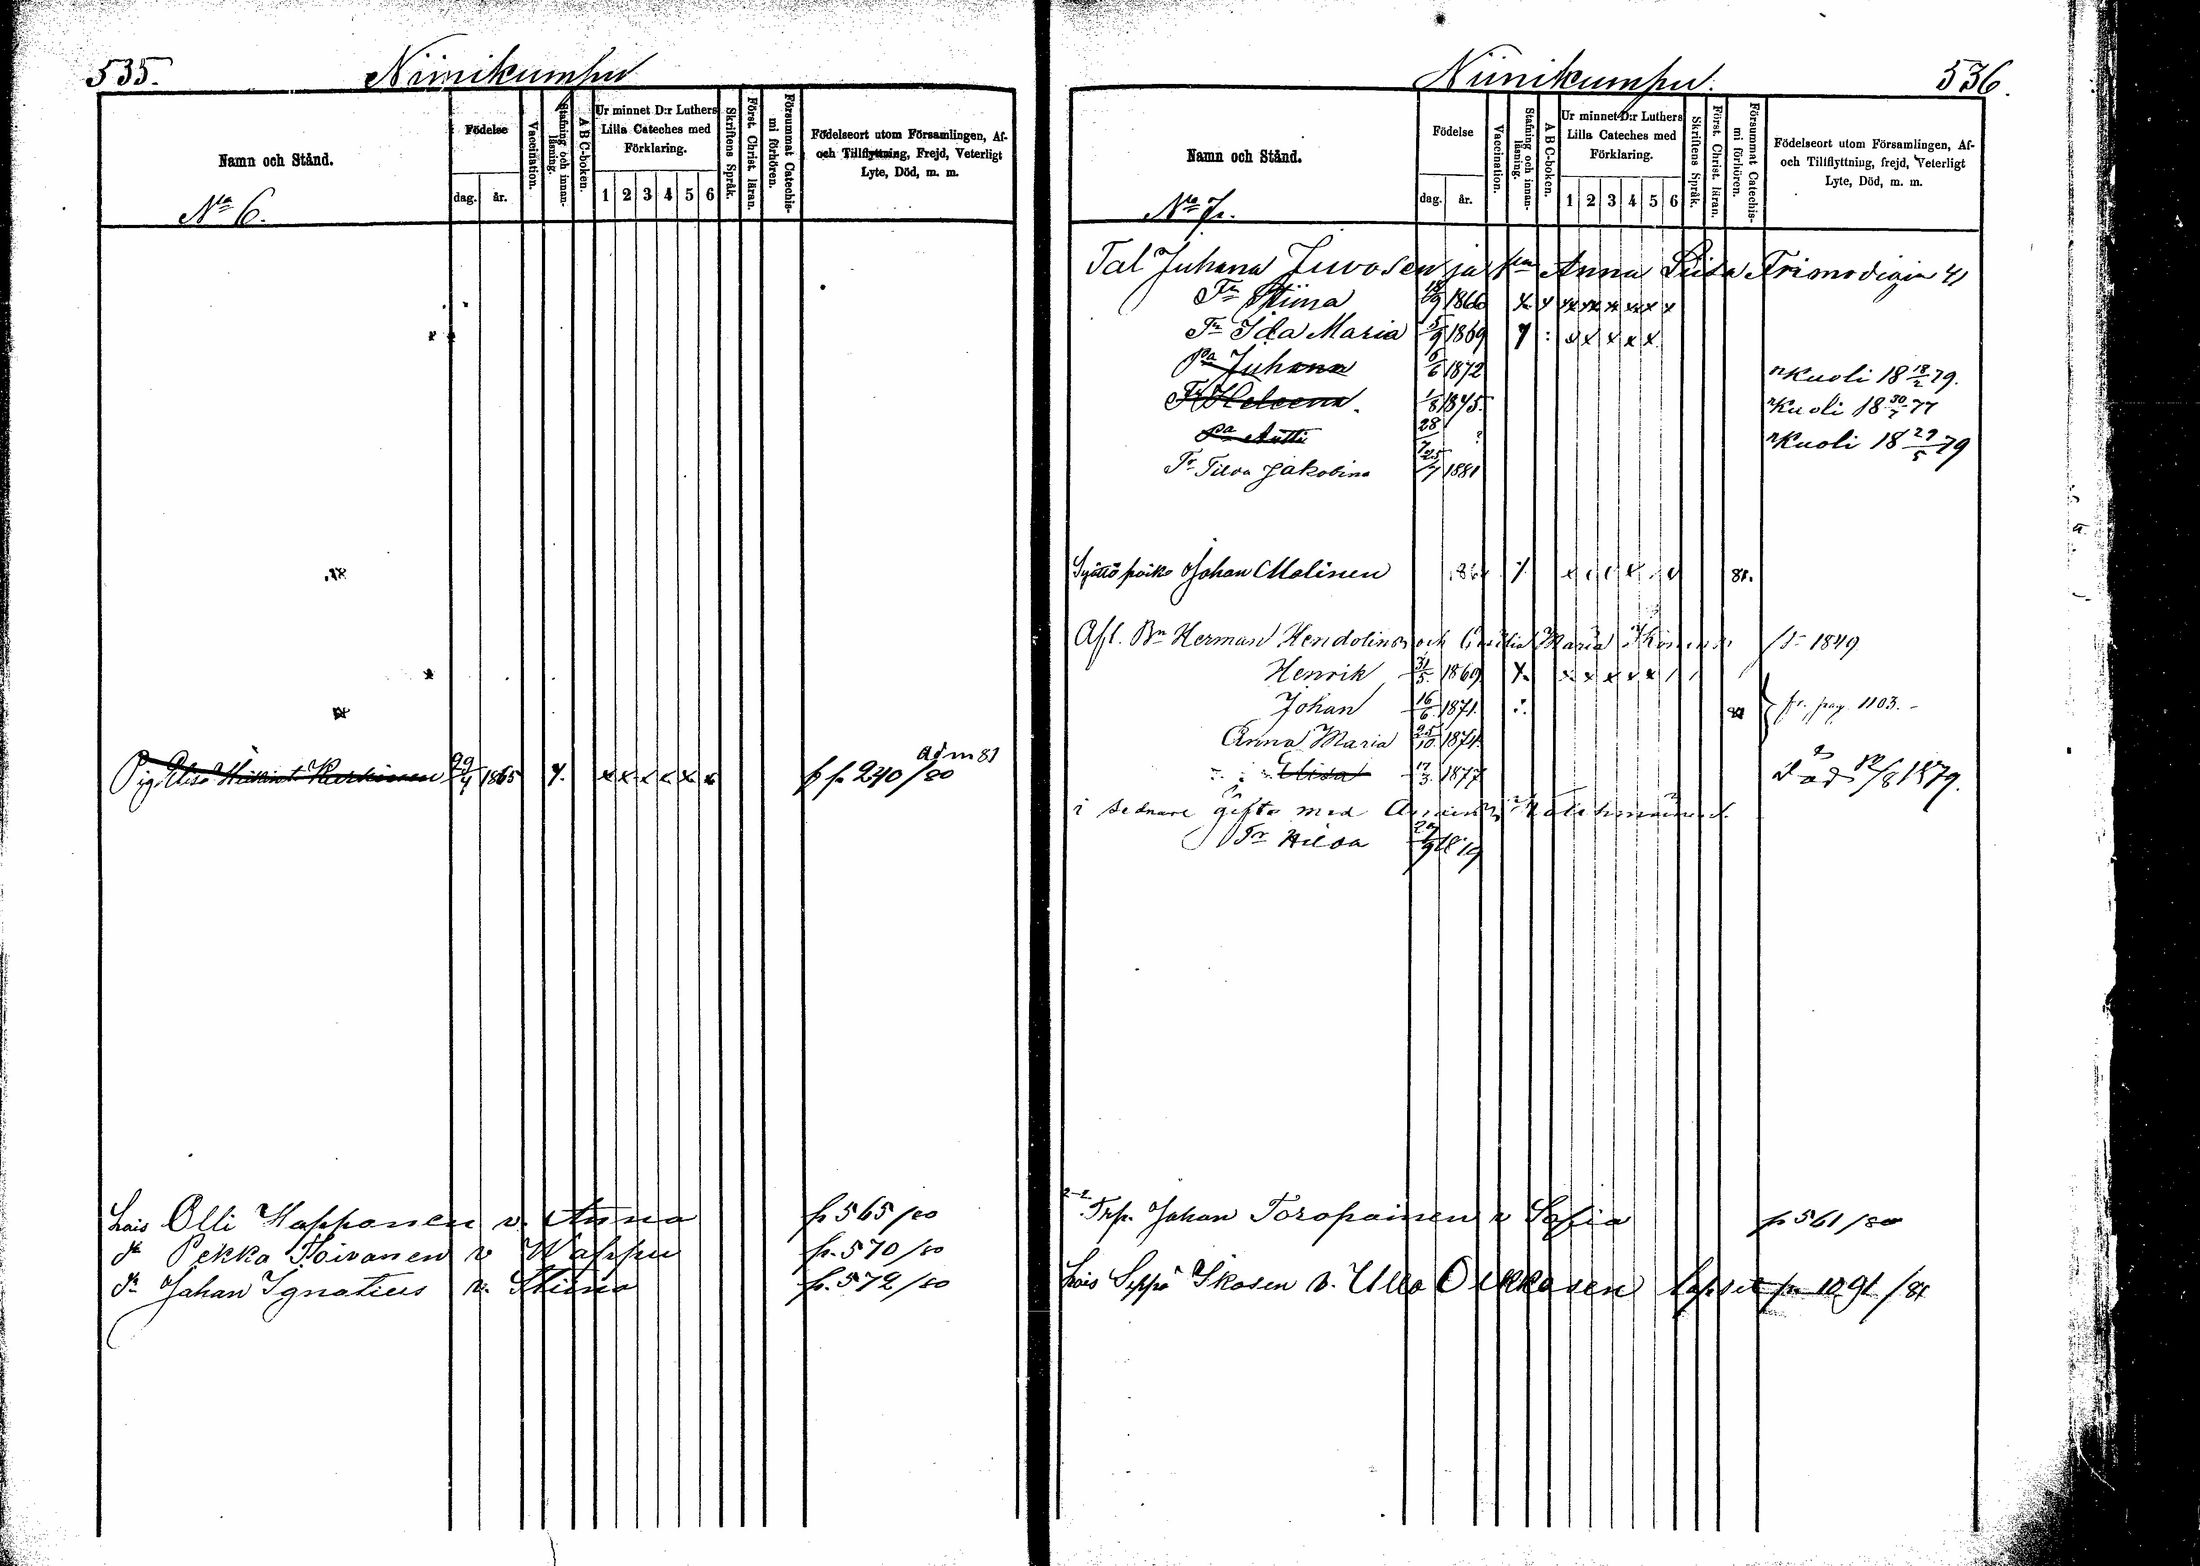 535.
Niinikumpu
Namn och Stånd.
No 6.
Födelse
dag.
år.
Vaccination.
Stafning och innan-läsning.
A B C-boken.
Ur minnet D:r Luthers
Lilla Cateches med
Förklaring.
1 2 3 4 5 6
Skriftens Språk.
Först. Christ. läran.
Försummat Catechis-
mi förhören.
Födelseort utom Församlingen, Af-
och Tillflyttning, Frejd, Veterligt
Lyte, Död, m. m.
adm 81
Pig. Karkinen 29/4 1865 fr 240/80
Lois Olli Happonen v. Anna fr 565/80
Pekka Toivanen v Wappu fr. 570/80
Johan Ignatius v. Stiina fr. 572/80
536.
Niinikumpu.
Namn och Stånd.
No 7.
Födelse
dag.
år.
Vaccination.
Stafning och innan-läsning.
A B C-boken.
Ur minnet D:r Luthers
Lilla Cateches med
Förklaring.
1 2 3 4 5 6
Skriftens Språk.
Först. Christ. läran.
Försummat Catechis-
mi förhören.
Födelseort utom Församlingen, Af-
och Tillflyttning, frejd, Veterligt
Lyte, Död, m. m.
Tal Juhana Juvosen ja Anna Liisa
Tr Stiina 18/9 1866
Tr Ida Maria 5/9 1869
Pa Juhana 6/6 1872 kuoli 18 18/2 79.
Tr Heleena. 1/8 1875. kuoli 18 30/7 77
Pa Antti 28/7 kuoli 18 29/5 79
Tr Jakobina 1881
Syöttö poika Johan Malinen 81.
Afl. Bn Herman Hendolins och Maria 1849
Henrik 31/5 1869
Johan 16/6 1871. fr. pag. 1103.
Anna Maria 25/10 1874
Elisa 17/3 1877 Död 1879.
i sednare gifte med
Tr Hilda
Johan Toropainen v Sofia fr 561/80
Lois Seppä Ikosen v. Ulla Oikkosen lapset fr 1091/81